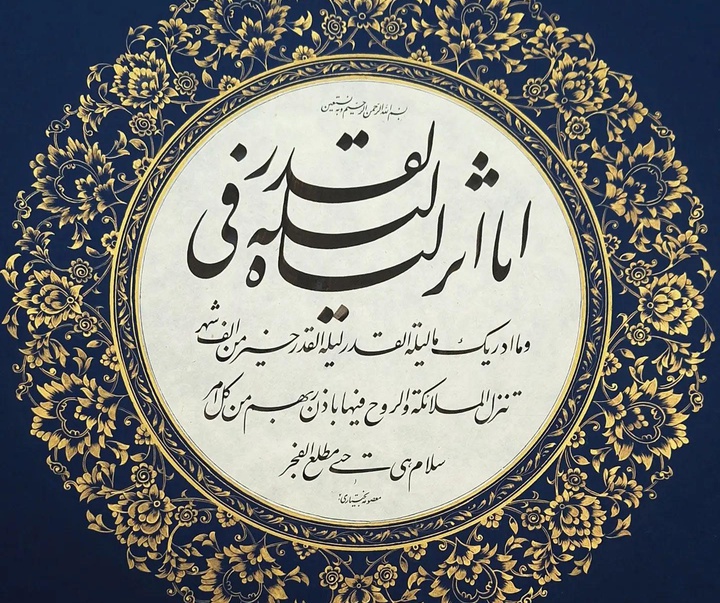 بسم الله الرحمن الرحیم و به نستعین
انا انزلناه فی لیله القدر
وما ادریک ما لیلة القدر لیلة القدر خیر من الف شهر
تنزل الملائکة والروح فیها باذن ربهم من کل امر
سلام هی حتی مطلع الفجر
معصومه بختیاری